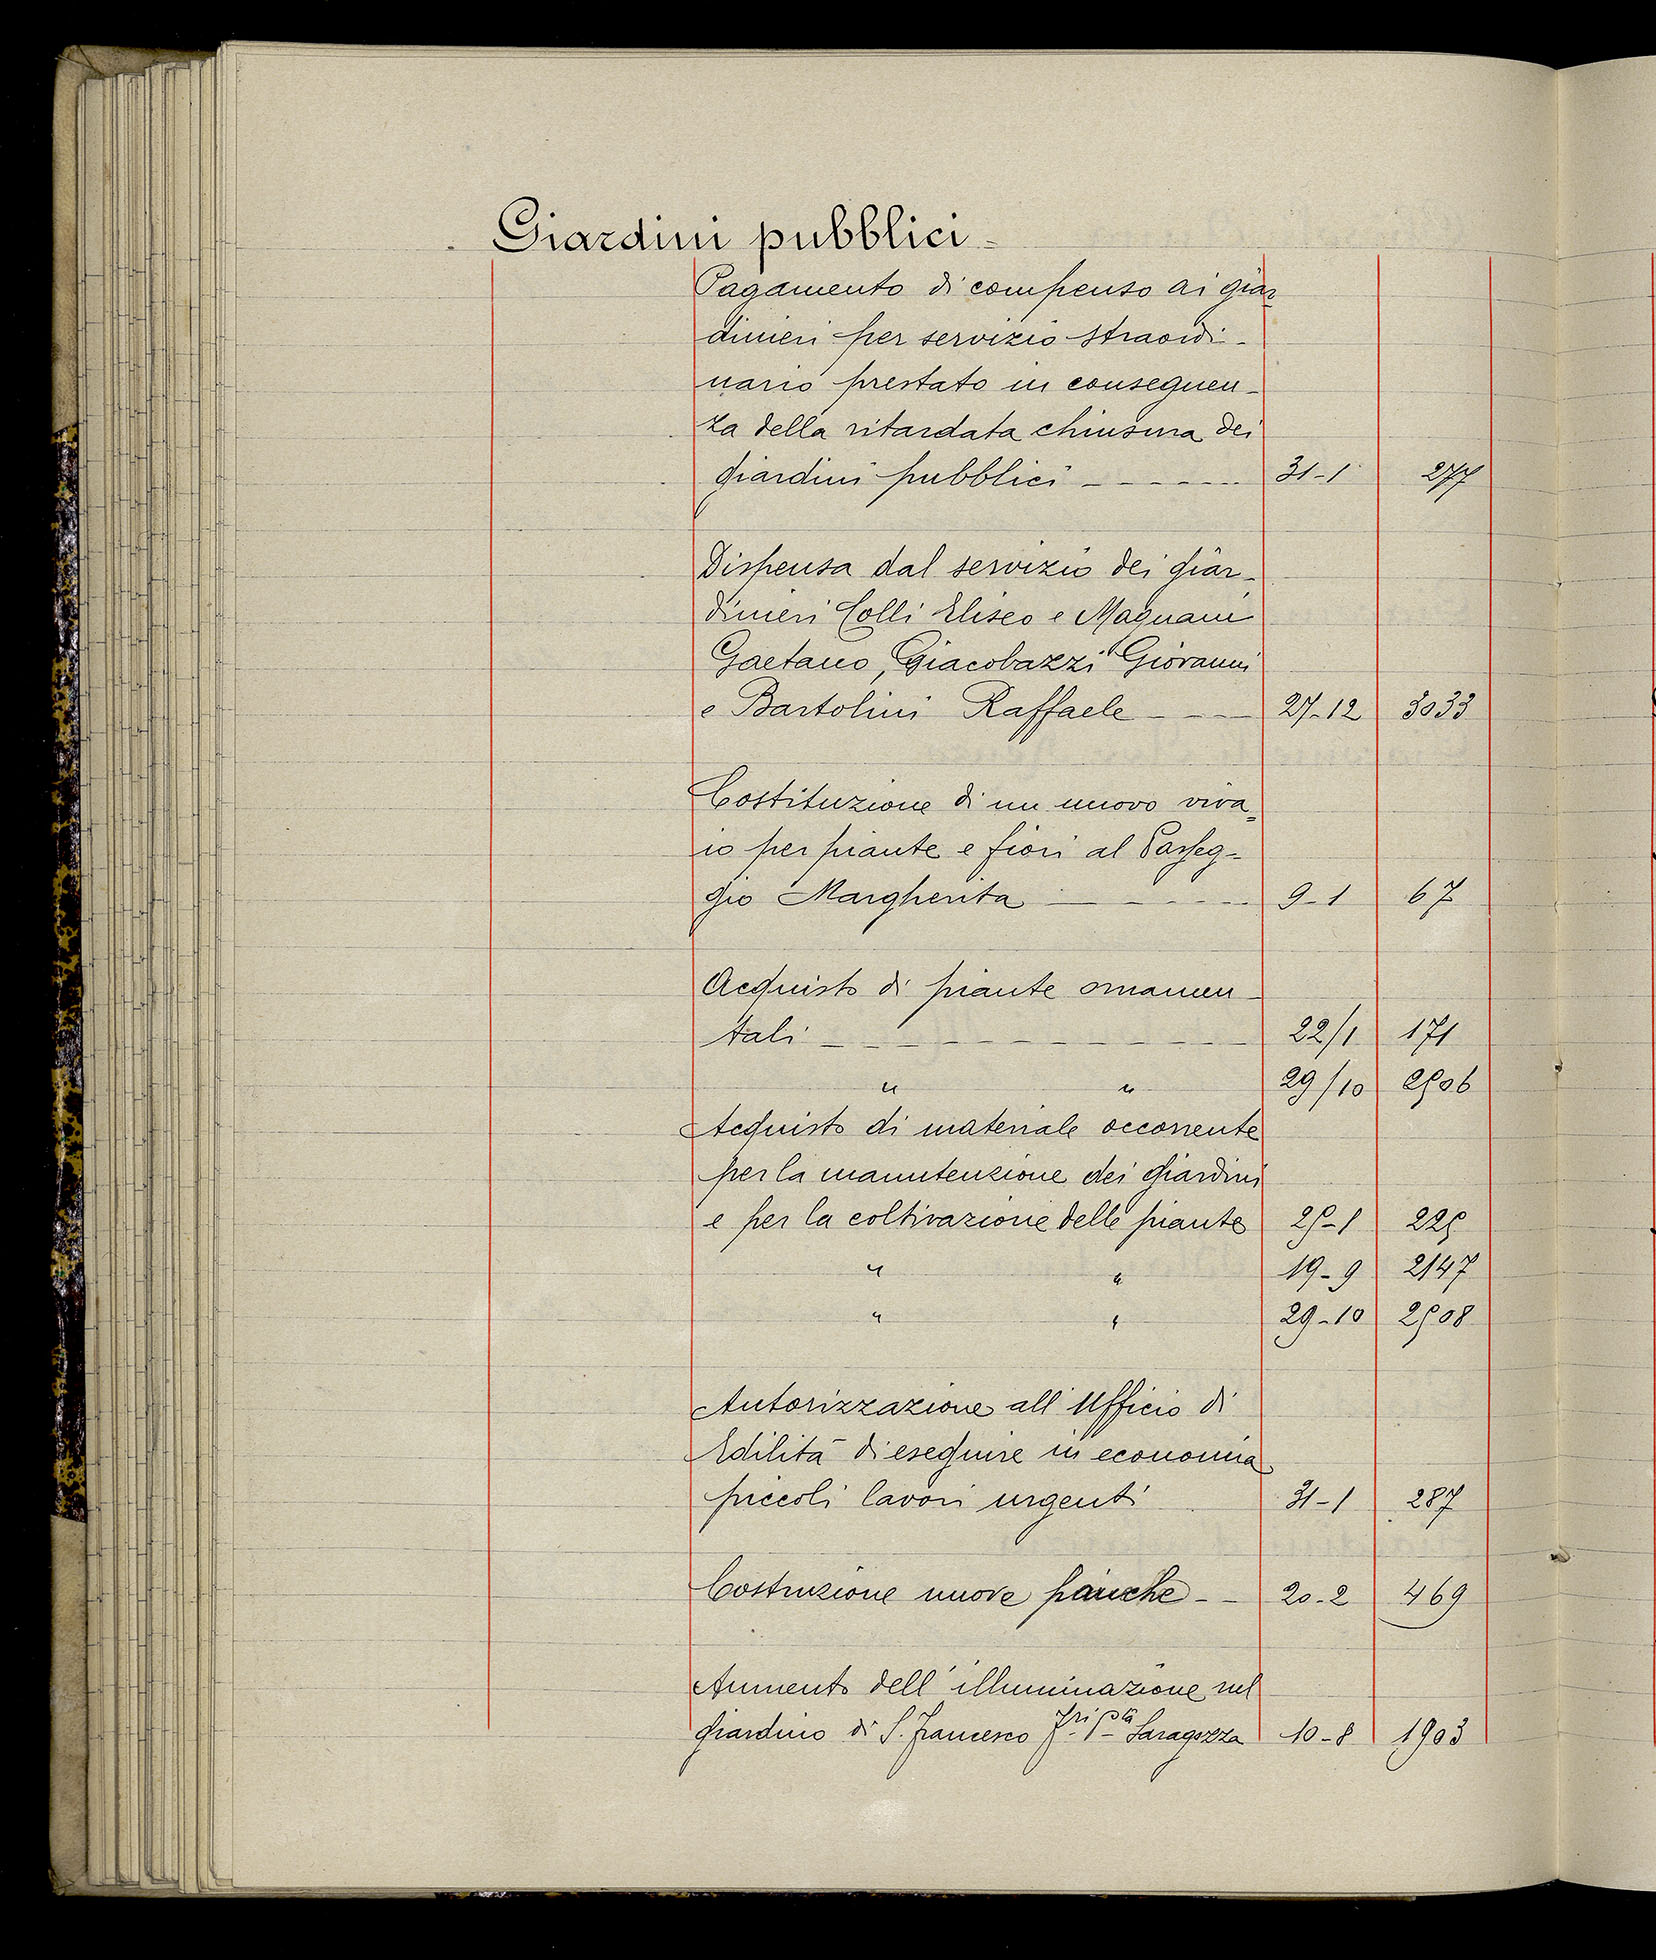 Giardini pubblici -
Pagamento di compenso ai giar
dinieri per servizio straordi-
nario prestato in conseguen-
za della ritardata chiusura dei
giardini pubblici - - - - - - - 31-1 277
Dispensa dal servizio dei giar-
dinieri Colli Eliseo e Magnani
Gaetano, Giacobazzi Giovanni
e Bartolini Raffaele - - - 27-12 3033
Costituzione di un nuovo viva=
io per piante e fiori al Passeg=
gio Margherita - - - - - 9-1 67
Acquisto di piante ornamen-
tali - - - - - - - - - - - 22/1 171
" " 29/10 2506
Acquisto di materiale occorrente
per la manutenzione dei giardini
e per la coltivazione delle piante 25-1 225
" " 19-9 2147
" " 29-10 2508
Autorizzazione all'Ufficio di
Edilità di eseguire in economia
piccoli lavori urgenti 31-1 287
Costruzione nuove panche - - 20-2 469
Aumento dell'illuminazione nel
giardino di S. Francesco Saragozza 10-8 1903